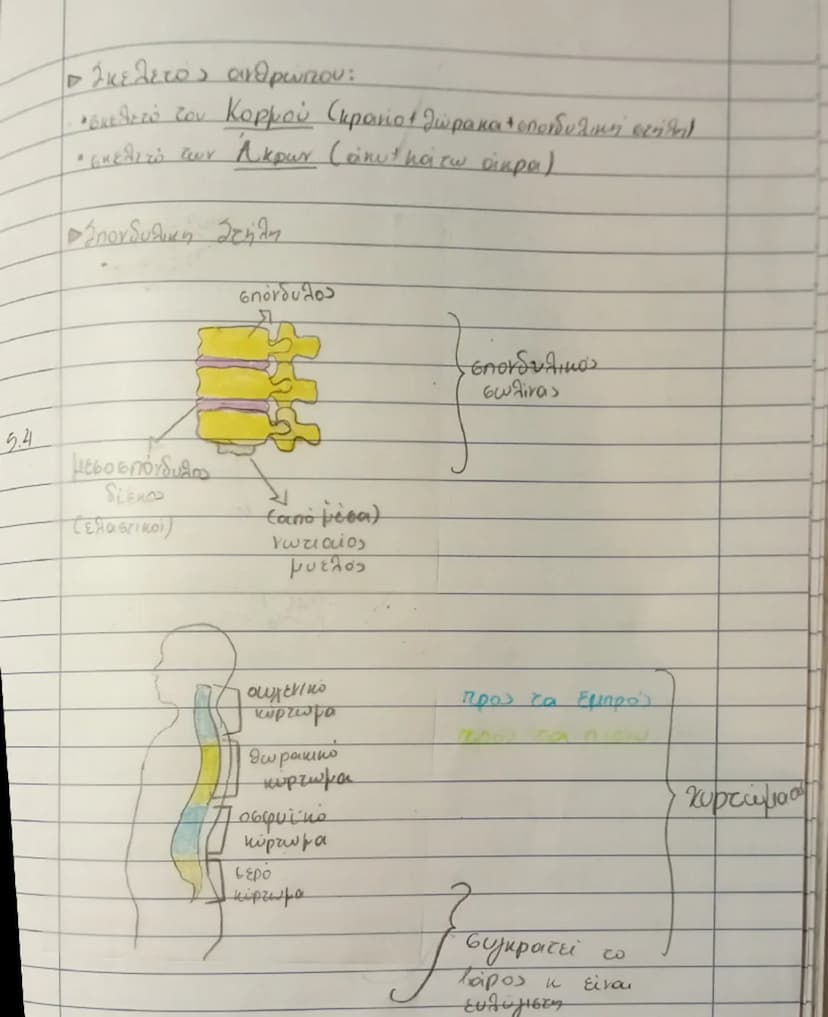 ▷ Σκελετός ανθρώπου:
• σκελετό του Κορμού (κρανίο + θώρακα + σπονδυλική στήλη)
• σκελετό των Άκρων (άνω + κάτω άκρα)
▷ Σπονδυλική Στήλη
σπόνδυλος
σπονδυλικός
σωλήνας
5.4
μεσοσπόνδυλος
δίσκος
(ελαστικοί)
(από μέσα)
νωτιαίος
μυελός
αυχενικό
κύρτωμα
προς τα εμπρός
προς τα πίσω
θωρακικό
κύρτωμα
Κυρτώματα
οσφυϊκό
κύρτωμα
ιερό
κύρτωμα
συγκρατεί το
βάρος κ είναι
ευλύγιστη